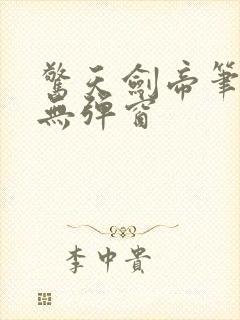 驚天劍帝筆
無彈窗
李中貴